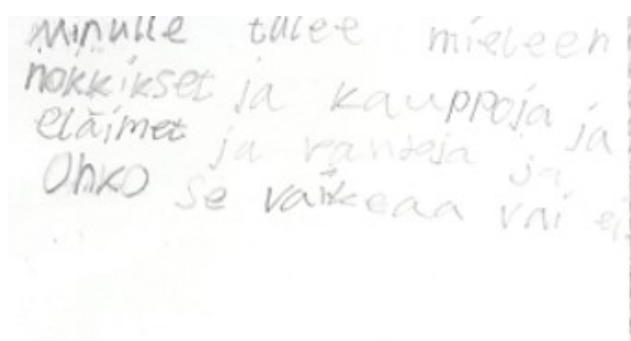 Minulle tulee mieleen
nokkikset ja kauppoja ja
eläimet ja rantoja ja
Ohko se vaikeaa vai ei.